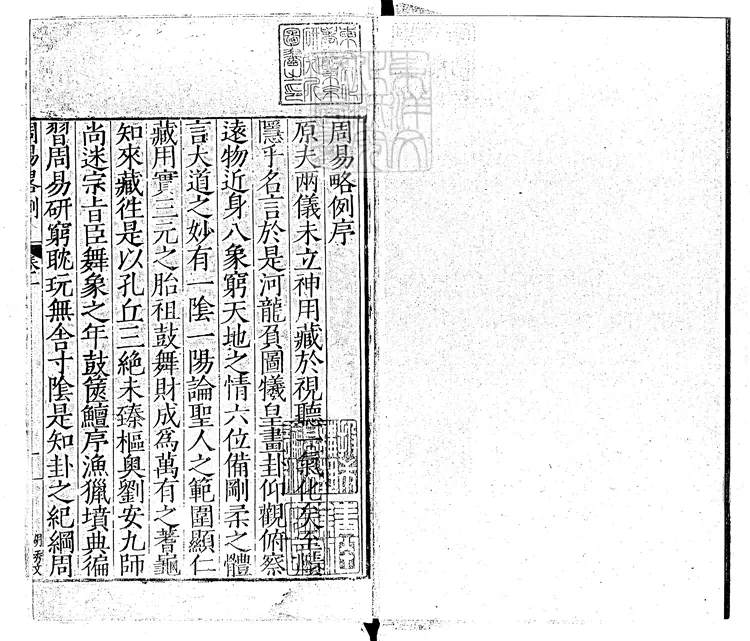 周易略例序
原夫兩儀未立神用藏於視聽一氣化矣至賾
隱乎名言於是河龍負圖犧皇畫卦仰觀俯察
遠物近身八象窮天地之情六位備剛柔之體
言大道之妙有一陰一陽論聖人之範圍顯仁
藏用實三元之胎祖鼓舞財成爲萬有之蓍龜
知來藏徃是以孔丘三絶未臻樞奥劉安九師
尚迷宗旨臣舞象之年鼓篋鱣序漁獵墳典徧
習周易研窮耽玩無舍寸陰是知卦之紀綱周
周易畧例